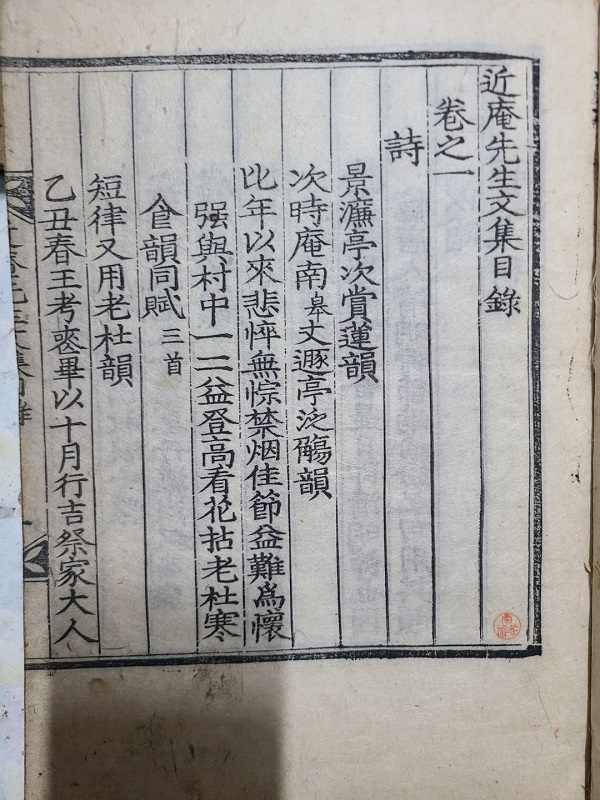 近庵先生文集目錄
卷之一
詩
景濂亭次賞蓮韻
次時庵南皐丈遯亭泛觴韻
比年以來悲悴無悰禁烟佳節益難爲懷
强與村中一二益登高看花拈老杜寒
食韻同賦三首
短律又用老杜韻
乙丑春王考喪畢以十月行吉祭家大人